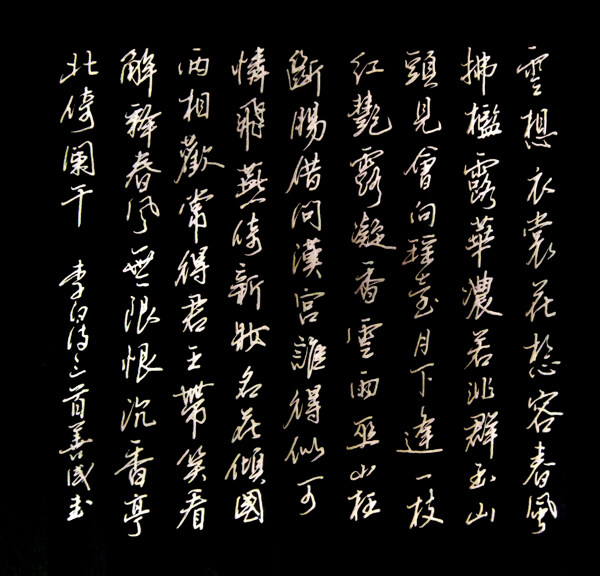 雲想衣裳花想容春風
拂檻露華濃若非群玉山
頭見會向瑤臺月下逢一枝
紅艷露凝香雲雨巫山枉
斷腸借問漢宮誰得似可
憐飛燕倚新妝名花傾國
兩相歡常得君王帶笑看
解釋春風無限恨沉香亭
北倚闌干 李白詩三首善書